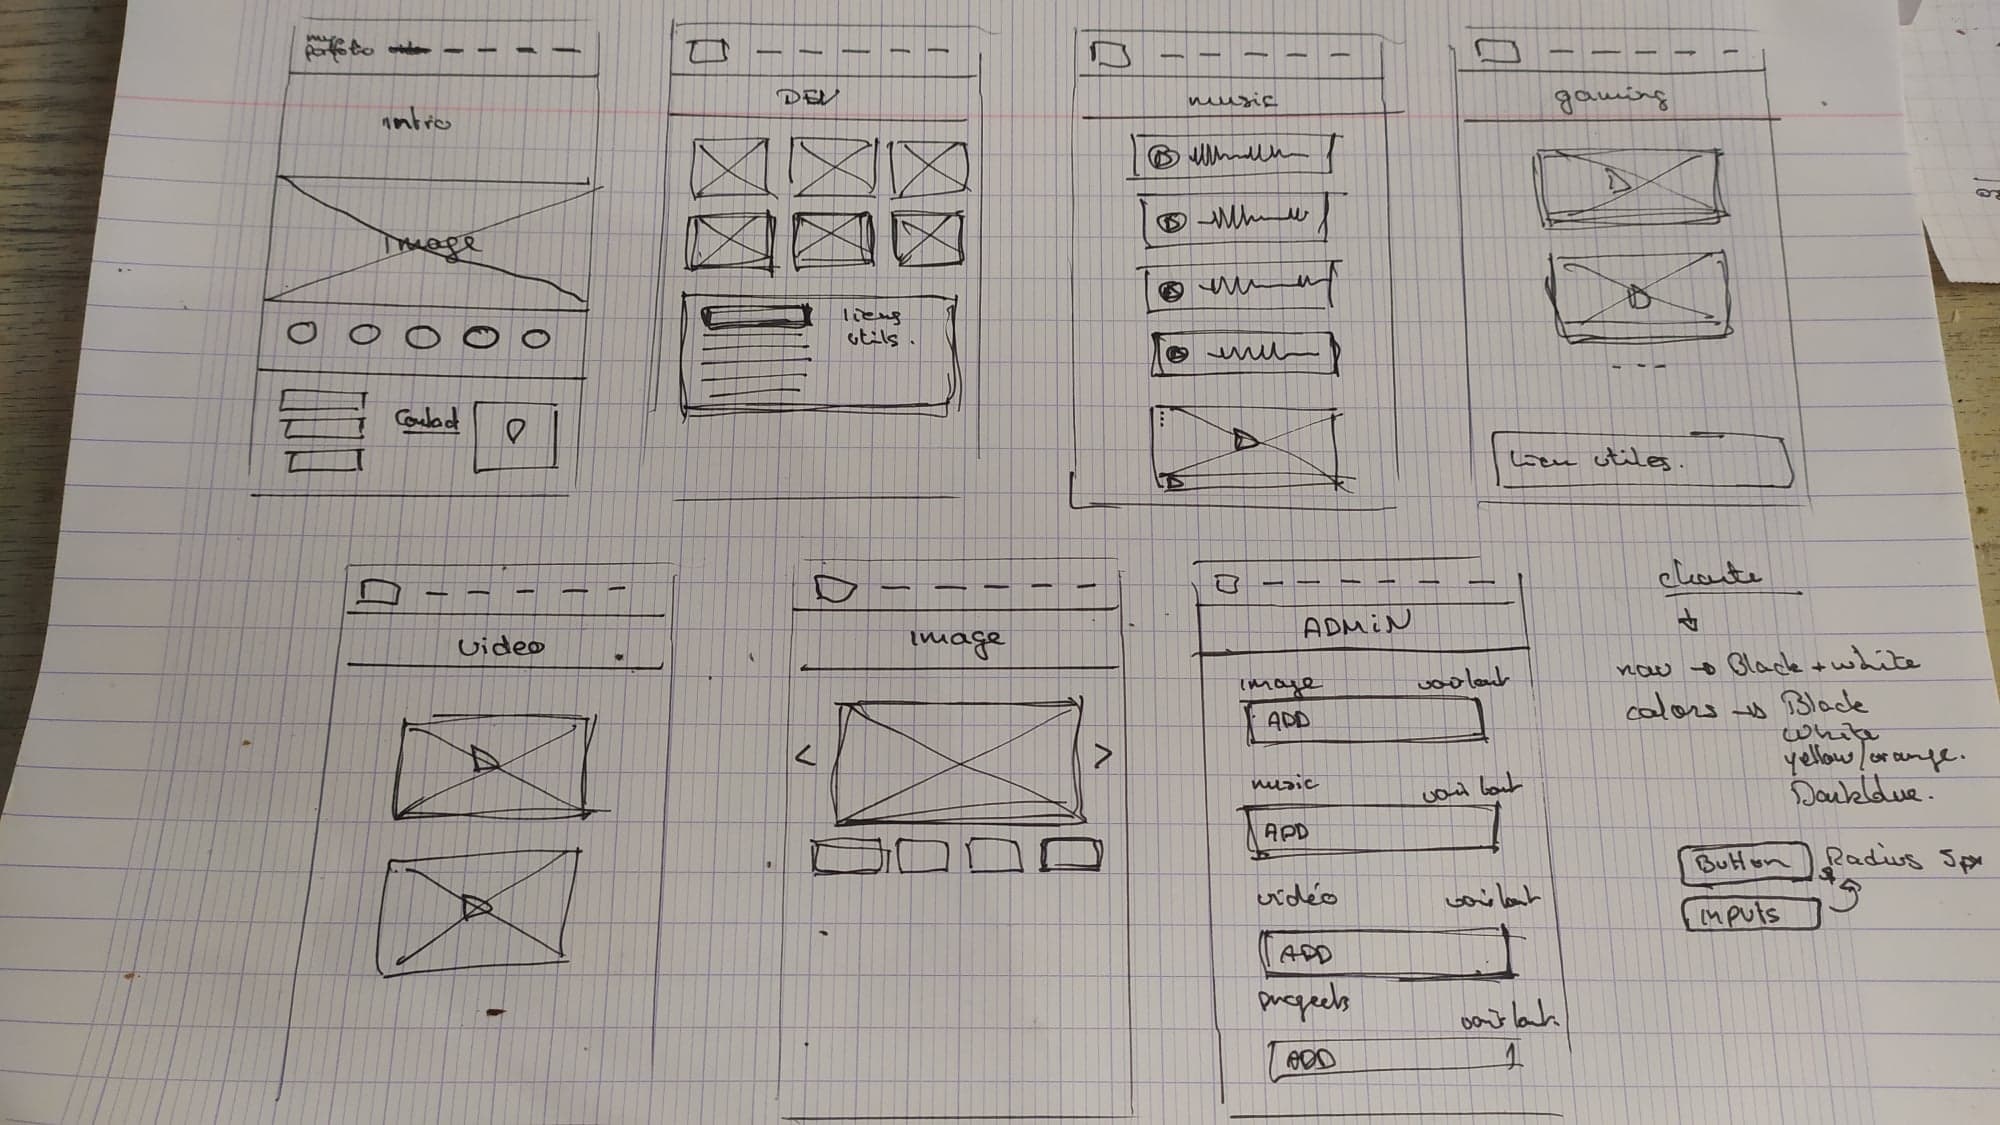 porfolio
intro
image
Contact
DEV
liens
utils.
music
gaming
Lien utiles.
video
image
<
>
ADMiN
image voir tout
ADD
music voir tout
ADD
vidéo voir tout
ADD
progects voir tout.
ADD
charte
nav → Black + white
colors → Black
white
yellow/orange.
Darkblue.
Button Radius 5px
inputs